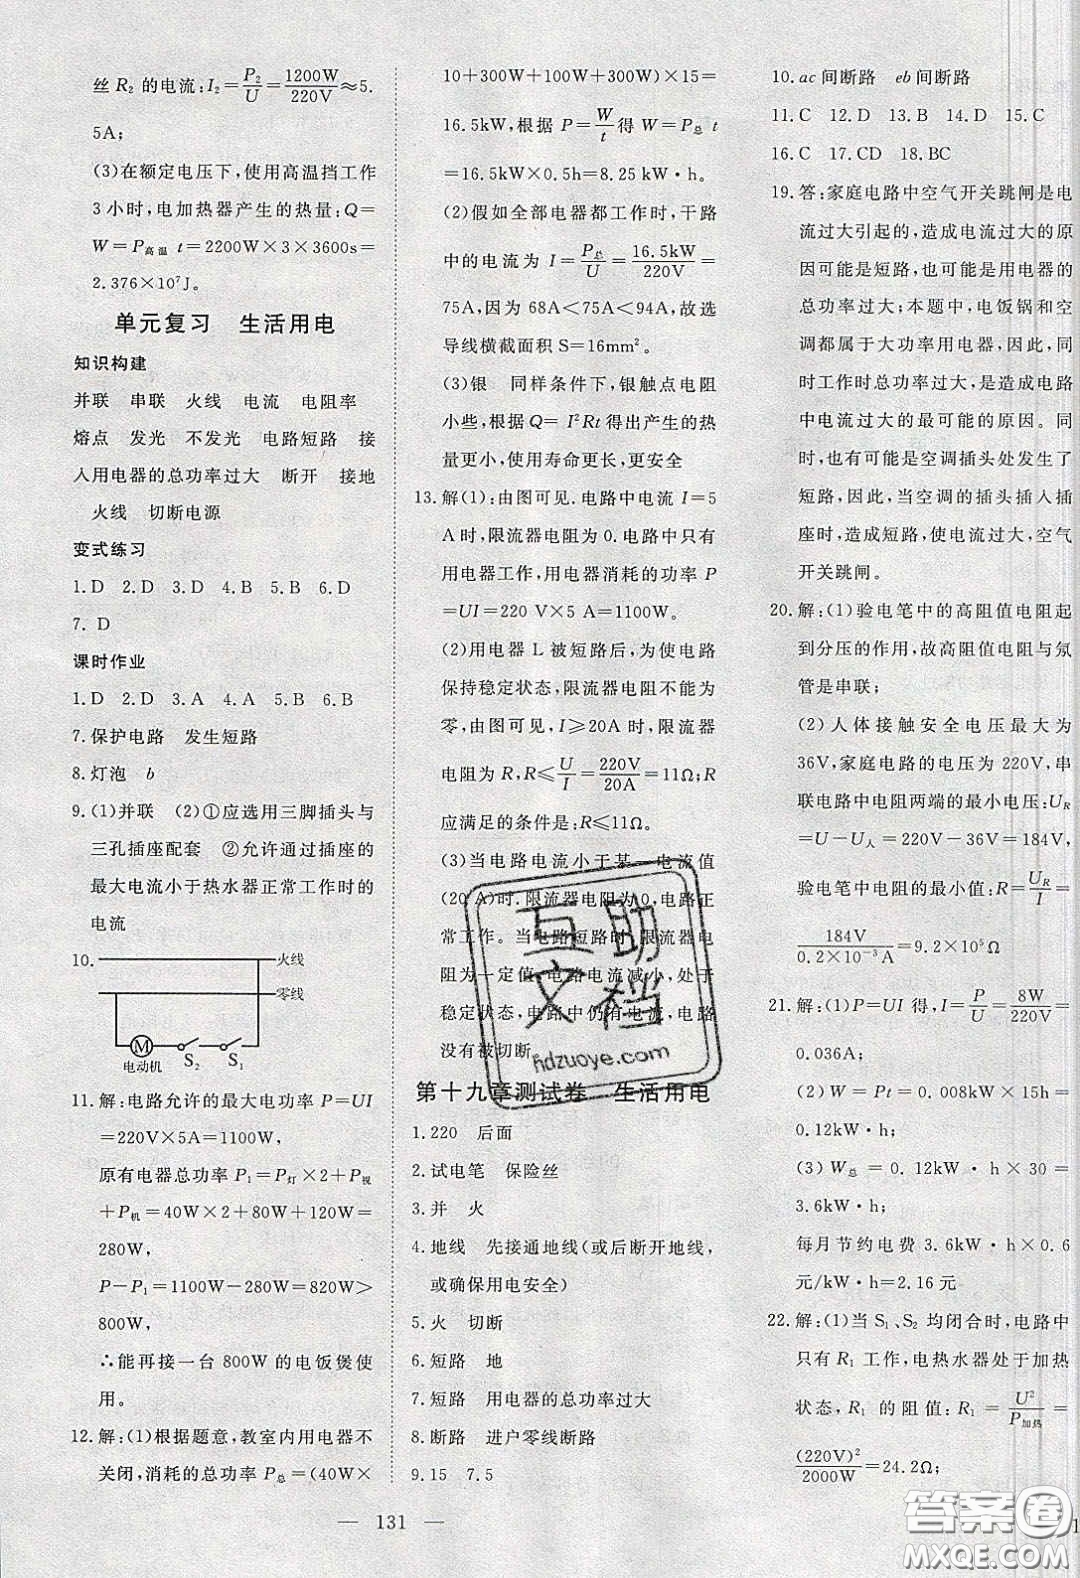 丝 R₂ 的电流:I₂=P₂/U=1200W/220V≈5.
5A;
(3)在额定电压下,使用高温挡工作
3小时,电加热器产生的热量:Q=
W=P高温 t=2200W×3×3600s=
2.376×10⁷J。
单元复习 生活用电
知识构建
并联 串联 火线 电流 电阻率
熔点 发光 不发光 电路短路 接
入用电器的总功率过大 断开 接地
火线 切断电源
变式练习
1.D 2.D 3.D 4.B 5.B 6.D
7. D
课时作业
1.D 2.D 3.A 4.A 5.B 6.B
7.保护电路 发生短路
8.灯泡 b
9.(1)并联 (2)①应选用三脚插头与
三孔插座配套 ②允许通过插座的
最大电流小于热水器正常工作时的
电流
10.
火线
零线
M
电动机 S₂ S₁
11.解:电路允许的最大电功率 P=UI
=220V×5A=1100W,
原有电器总功率 P₁=P灯×2+P视
+P机=40W×2+80W+120W=
280W,
P-P₁=1100W-280W=820W>
800W,
∴能再接一台 800W 的电饭煲使
用。
12.解:(1)根据题意,教室内用电器不
关闭,消耗的总功率 P总=(40W×
10+300W+100W+300W)×15=
16.5kW,根据 P=W/t得 W=P总 t
=16.5kW×0.5h=8.25 kW·h。
(2)假如全部电器都工作时,干路
中的电流为 I=P总/U=16.5kW/220V=
75A,因为 68A<75A<94A,故选
导线横截面积 S=16mm²。
(3)银 同样条件下,银触点电阻
小些,根据 Q=I²Rt得出产生的热
量更小,使用寿命更长,更安全
13.解(1):由图可见.电路中电流 I=5
A时,限流器电阻为0.电路中只有
用电器工作,用电器消耗的功率 P
=UI=220 V×5 A=1100W。
(2)用电器 L 被短路后,为使电路
保持稳定状态,限流器电阻不能为
零,由图可见,I≥20A时,限流器
电阻为 R,R≤U/I=220V/20A=11Ω;R
应满足的条件是:R≤11Ω。
(3)当电路电流小于某一电流值
(20 A)时.限流器电阻为0,电路正
常工作。当电路短路时,限流器电
阻为一定值,电路电流减小,处于
稳定状态,电路中仍有电流,电路
没有被切断
第十九章测试卷 生活用电
1.220 后面
2.试电笔 保险丝
3.并 火
4.地线 先接通地线(或后断开地线,
或确保用电安全)
5.火 切断
6.短路 地
7.短路 用电器的总功率过大
8.断路 进户零线断路
9.15 7.5
10.ac间断路 eb间断路
11.C 12.D 13.B 14.D 15.C
16.C 17.CD 18.BC
19.答:家庭电路中空气开关跳闸是电
流过大引起的,造成电流过大的原
因可能是短路,也可能是用电器的
总功率过大;本题中,电饭锅和空
调都属于大功率用电器,因此,同
时工作时总功率过大,是造成电路
中电流过大的最可能的原因。同
时,也有可能是空调插头处发生了
短路,因此,当空调的插头插入插
座时,造成短路,电流过大,空气
开关跳闸。
20.解:(1)验电笔中的高阻值电阻起
到分压的作用,故高阻值电阻与氖
管是串联;
(2)人体接触安全电压最大为
36V,家庭电路的电压为220V,串
联电路中电阻两端的最小电压:U_R
=U-U人=220V-36V=184V,
验电笔中电阻的最小值:R=U_R/I=
184V/0.2×10⁻³A=9.2×10⁵Ω
21.解:(1)P=UI 得,I=P/U=8W/220V=
0.036A;
(2)W=Pt=0.008kW×15h=
0.12kW·h;
(3)W总=0.12kW·h×30=
3.6kW·h;
每月节约电费 3.6kW·h×0.6
元/kW·h=2.16元
22.解:(1)当 S₁、S₂ 均闭合时,电路中
只有 R₁ 工作,电热水器处于加热
状态,R₁ 的阻值:R₁=U²/P加热=
(220V)²/2000W=24.2Ω;
131
互助
文档
hdzuoye.com
答案圈
MXQE.COM